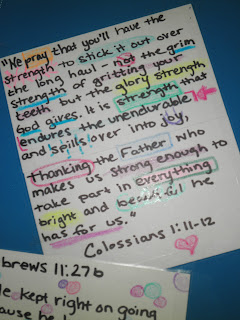 "We pray that you'll have the
strength to stick it out over
the long haul - not the grim
strength of gritting your
teeth but the glory strength
God gives. It is strength that
endures the unendurable
and spills over into joy,
thanking the Father who
makes us strong enough to
take part in everything
bright and beautiful he
has for us."
Colossians 1:11-12
brews 11:27b
kept right on going